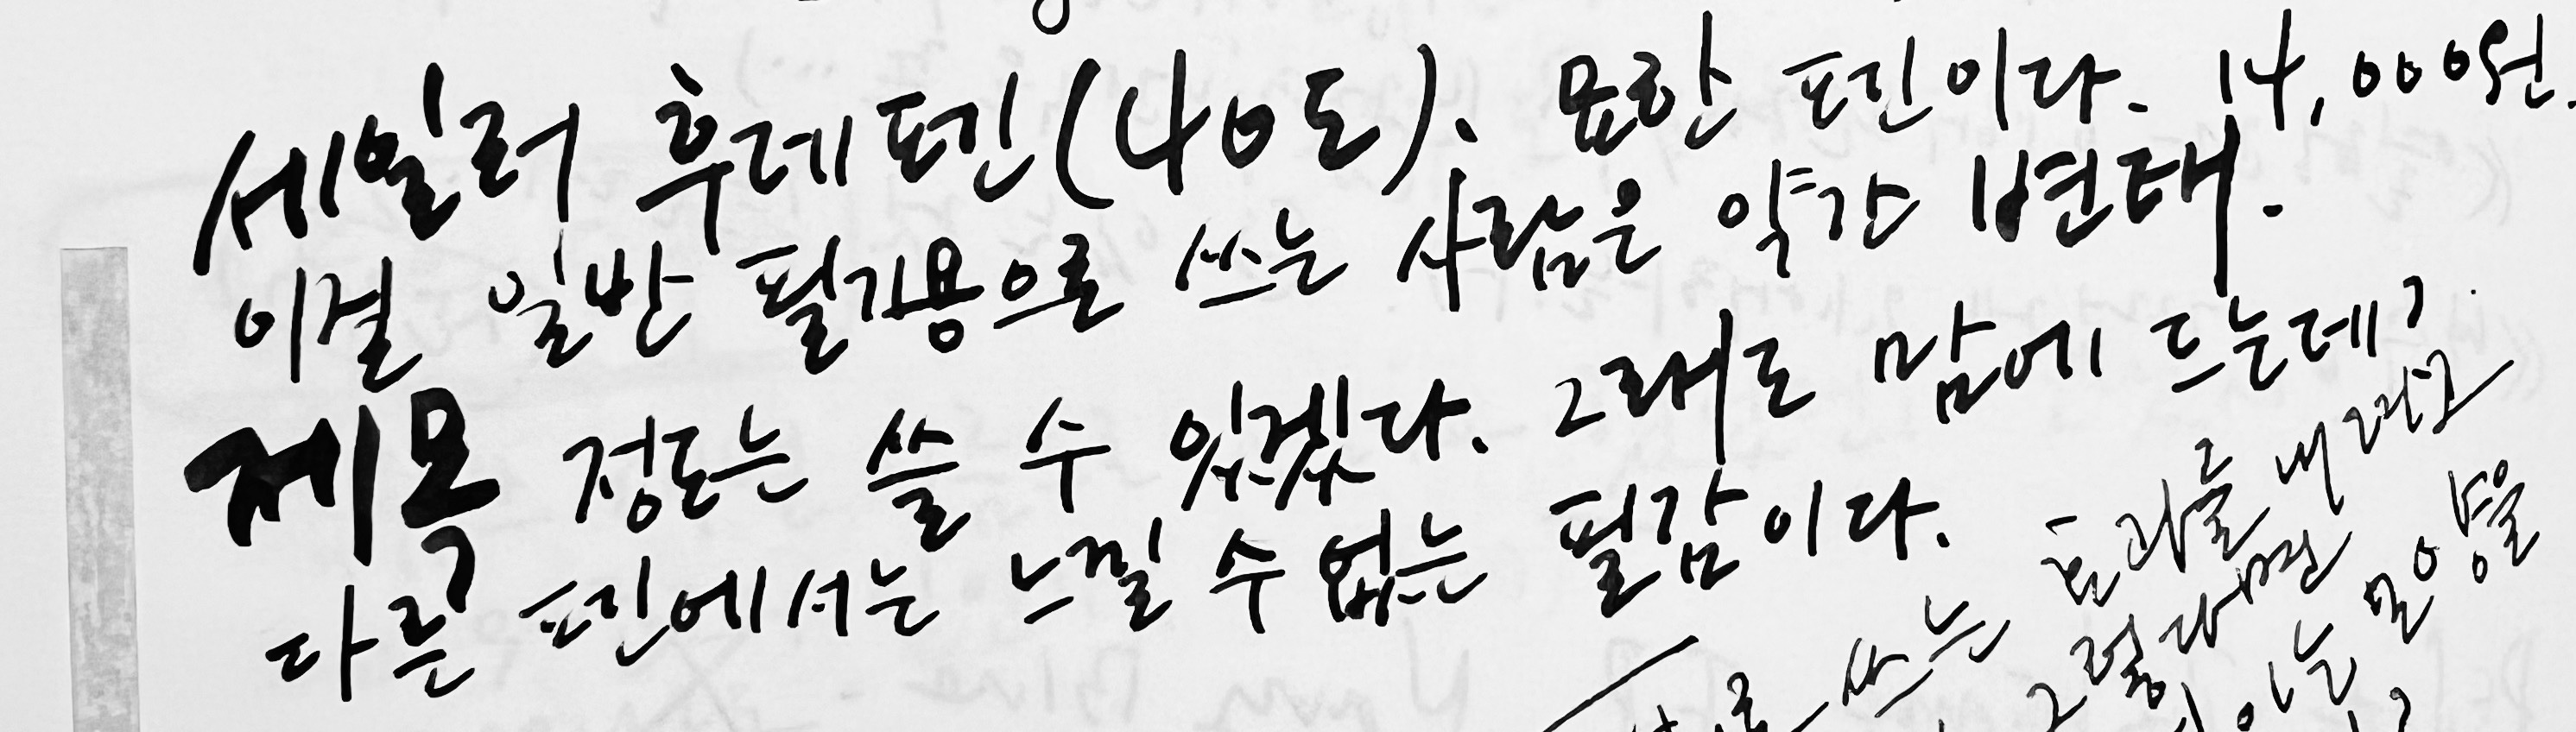 세일러 후데펜(40도). 묘한 펜이다. 14,000원.
이걸 일반 필기용으로 쓰는 사람은 약간 변태.
제목 정도는 쓸 수 있겠다. 그래도 맘에 드는데?
다른 펜에서는 느낄 수 없는 필감이다.
쓰는 효과를 내려고
그렇다면
있는 모양을